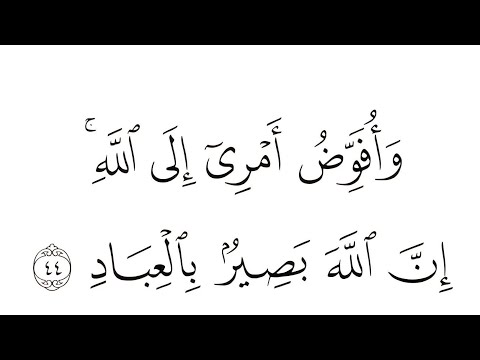 وَأُفَوِّضُ أَمۡرِىٓ إِلَى ٱللَّهِۚ
إِنَّ ٱللَّهَ بَصِيرُۢ بِٱلۡعِبَادِ ٤٤